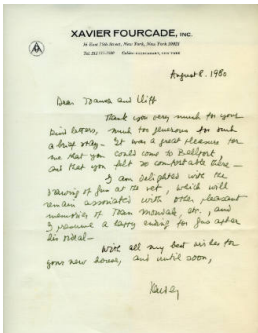 XAVIER FOURCADE, INC.
36 East 75th Street, New York, New York 10021
August 8. 1980
Dear and Cliff
Thank you very much for your
kind letters, much too generous for such
a brief stay — It was a great pleasure for
me that you could come to Bellport
and that you felt so comfortable there —
I am delighted with the
drawing of Gus at the vet, which will
remain associated with other pleasant
memories of etc., and
I presume a happy ending for Gus after
his ordeal —
With all my best wishes for
your new house, and until soon,